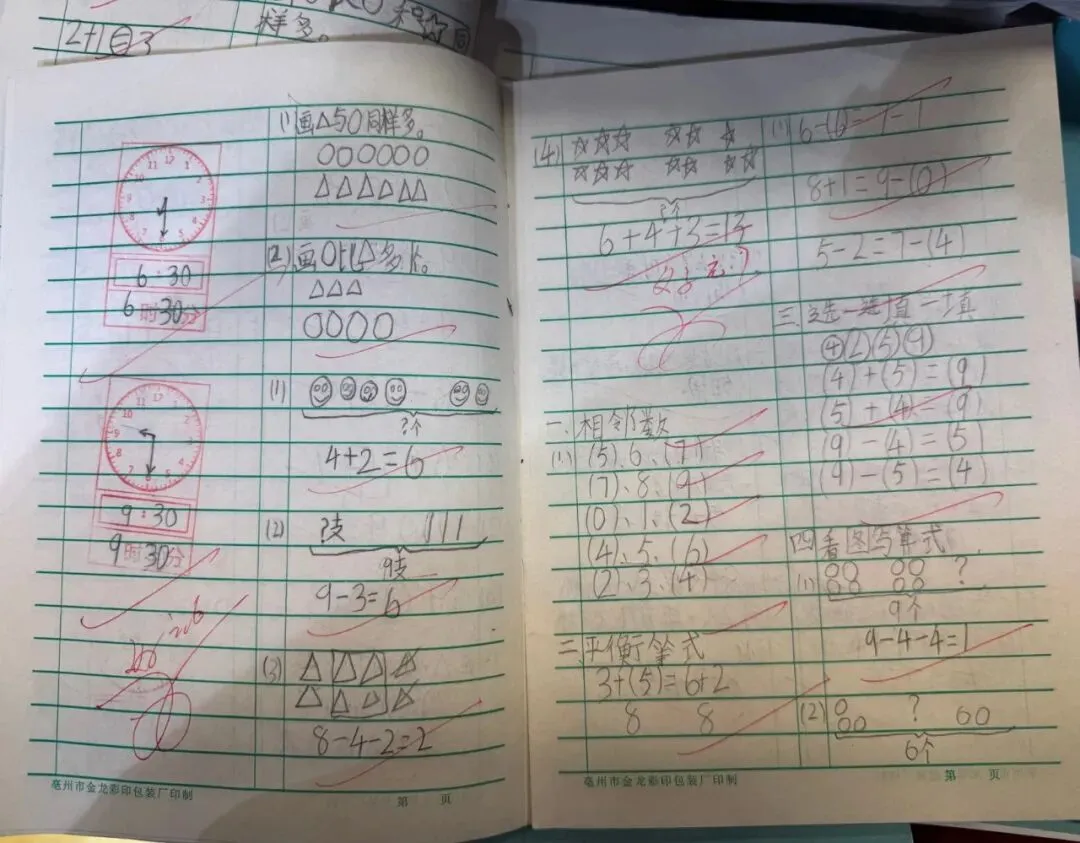 2+1=3
样多。
6:30
6时30分
9:30
9时30分
(1)画△与○同样多。
○○○○○○
△△△△△△
(2)画○比△多1个。
△△△
○○○○
(1)
?个
4+2=6
(2) ?支
9支
9-3=6
(3)
8-4-2=2
亳州市金龙彩印包装厂印制
第 页
(4) ☆☆☆ ☆☆ ☆
☆☆☆ ☆☆ ☆☆
?个
6+4+3=13
一、相邻数
(1) (5)、6、(7)
(7)、8、(9)
(0)、1、(2)
(4)、5、(6)
(2)、3、(4)
二、平衡算式
3+(5)=6+2
8 8
亳州市金龙彩印包装厂印制
8+1=9-(0)
5-2=7-(4)
三、选一选填一填
(4)+(5)=(9)
(5)+(4)=(9)
(9)-(4)=(5)
(9)-(5)=(4)
四看图写算式
(1) ○○ ○○ ?
○○ ○○
9个
9-4-4=1
(2) ○ ?
○○ ○○
6个
第 页